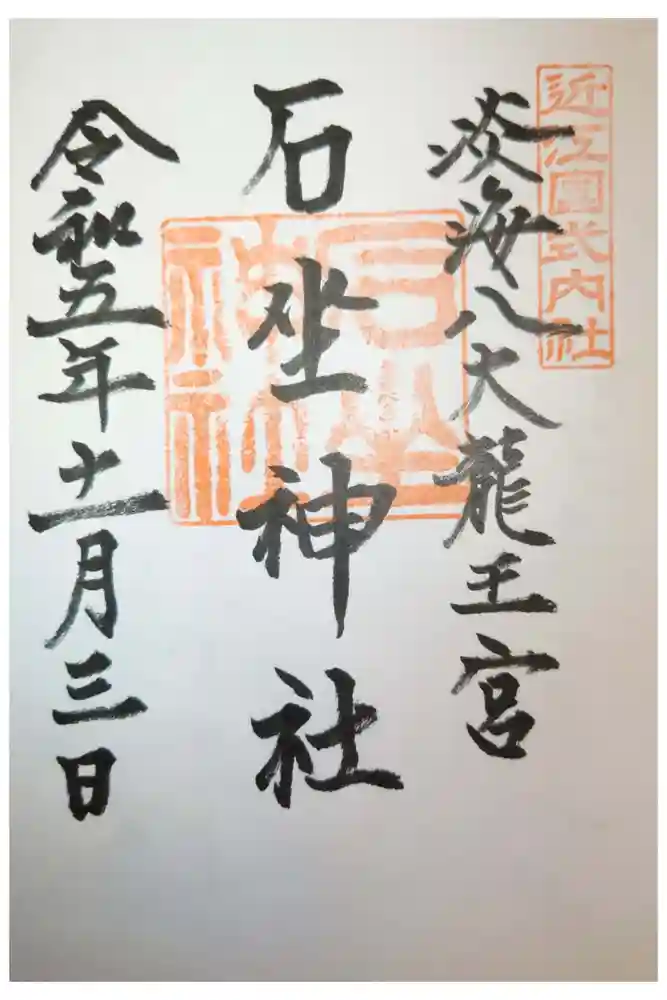 近江國式内社
淡海八大龍王宮
石坐神社
石坐
神社
令和五年十一月三日